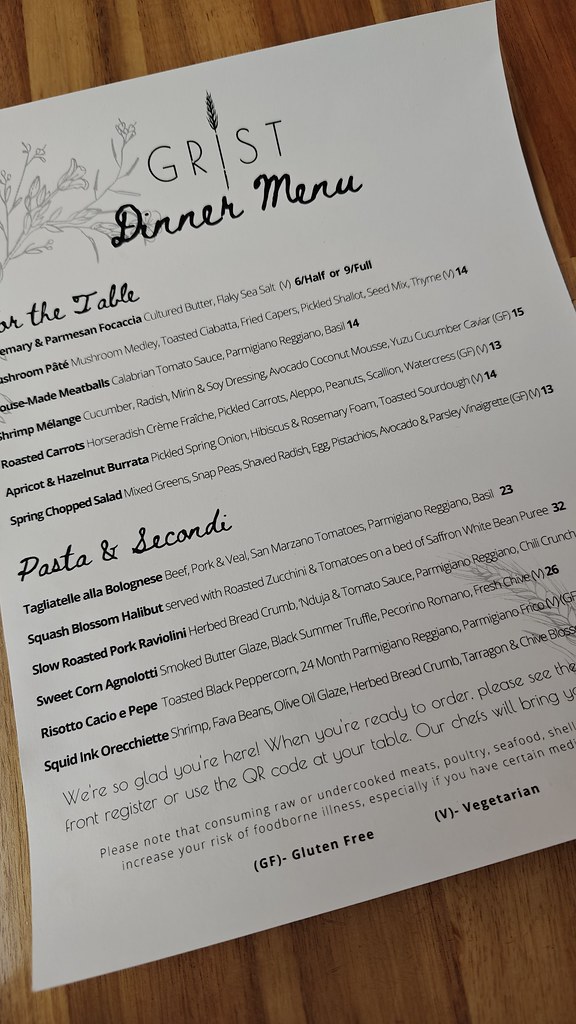 GRIST
Dinner Menu
or the Table
emary & Parmesan Focaccia Cultured Butter, Flaky Sea Salt (V) 6/Half or 9/Full
ushroom Pâté Mushroom Medley, Toasted Ciabatta, Fried Capers, Pickled Shallot, Seed Mix, Thyme (V) 14
ouse-Made Meatballs Calabrian Tomato Sauce, Parmigiano Reggiano, Basil 14
Shrimp Mélange Cucumber, Radish, Mirin & Soy Dressing, Avocado Coconut Mousse, Yuzu Cucumber Caviar (GF) 15
Roasted Carrots Horseradish Crème Fraîche, Pickled Carrots, Aleppo, Peanuts, Scallion, Watercress (GF) (V) 13
Apricot & Hazelnut Burrata Pickled Spring Onion, Hibiscus & Rosemary Foam, Toasted Sourdough (V) 14
Spring Chopped Salad Mixed Greens, Snap Peas, Shaved Radish, Egg, Pistachios, Avocado & Parsley Vinaigrette (GF) (V) 13
Pasta & Secondi
Tagliatelle alla Bolognese Beef, Pork & Veal, San Marzano Tomatoes, Parmigiano Reggiano, Basil 23
Squash Blossom Halibut served with Roasted Zucchini & Tomatoes on a bed of Saffron White Bean Puree 32
Slow Roasted Pork Raviolini Herbed Bread Crumb, 'Nduja & Tomato Sauce, Parmigiano Reggiano, Chili Crunch
Sweet Corn Agnolotti Smoked Butter Glaze, Black Summer Truffle, Pecorino Romano, Fresh Chive (V) 26
Risotto Cacio e Pepe Toasted Black Peppercorn, 24 Month Parmigiano Reggiano, Parmigiano Frico (V) (GF
Squid Ink Orecchiette Shrimp, Fava Beans, Olive Oil Glaze, Herbed Bread Crumb, Tarragon & Chive Bloss
We're so glad you're here! When you're ready to order, please see the
front register or use the QR code at your table. Our chefs will bring yo
Please note that consuming raw or undercooked meats, poultry, seafood, shell
increase your risk of foodborne illness, especially if you have certain medi
(GF)- Gluten Free (V)- Vegetarian